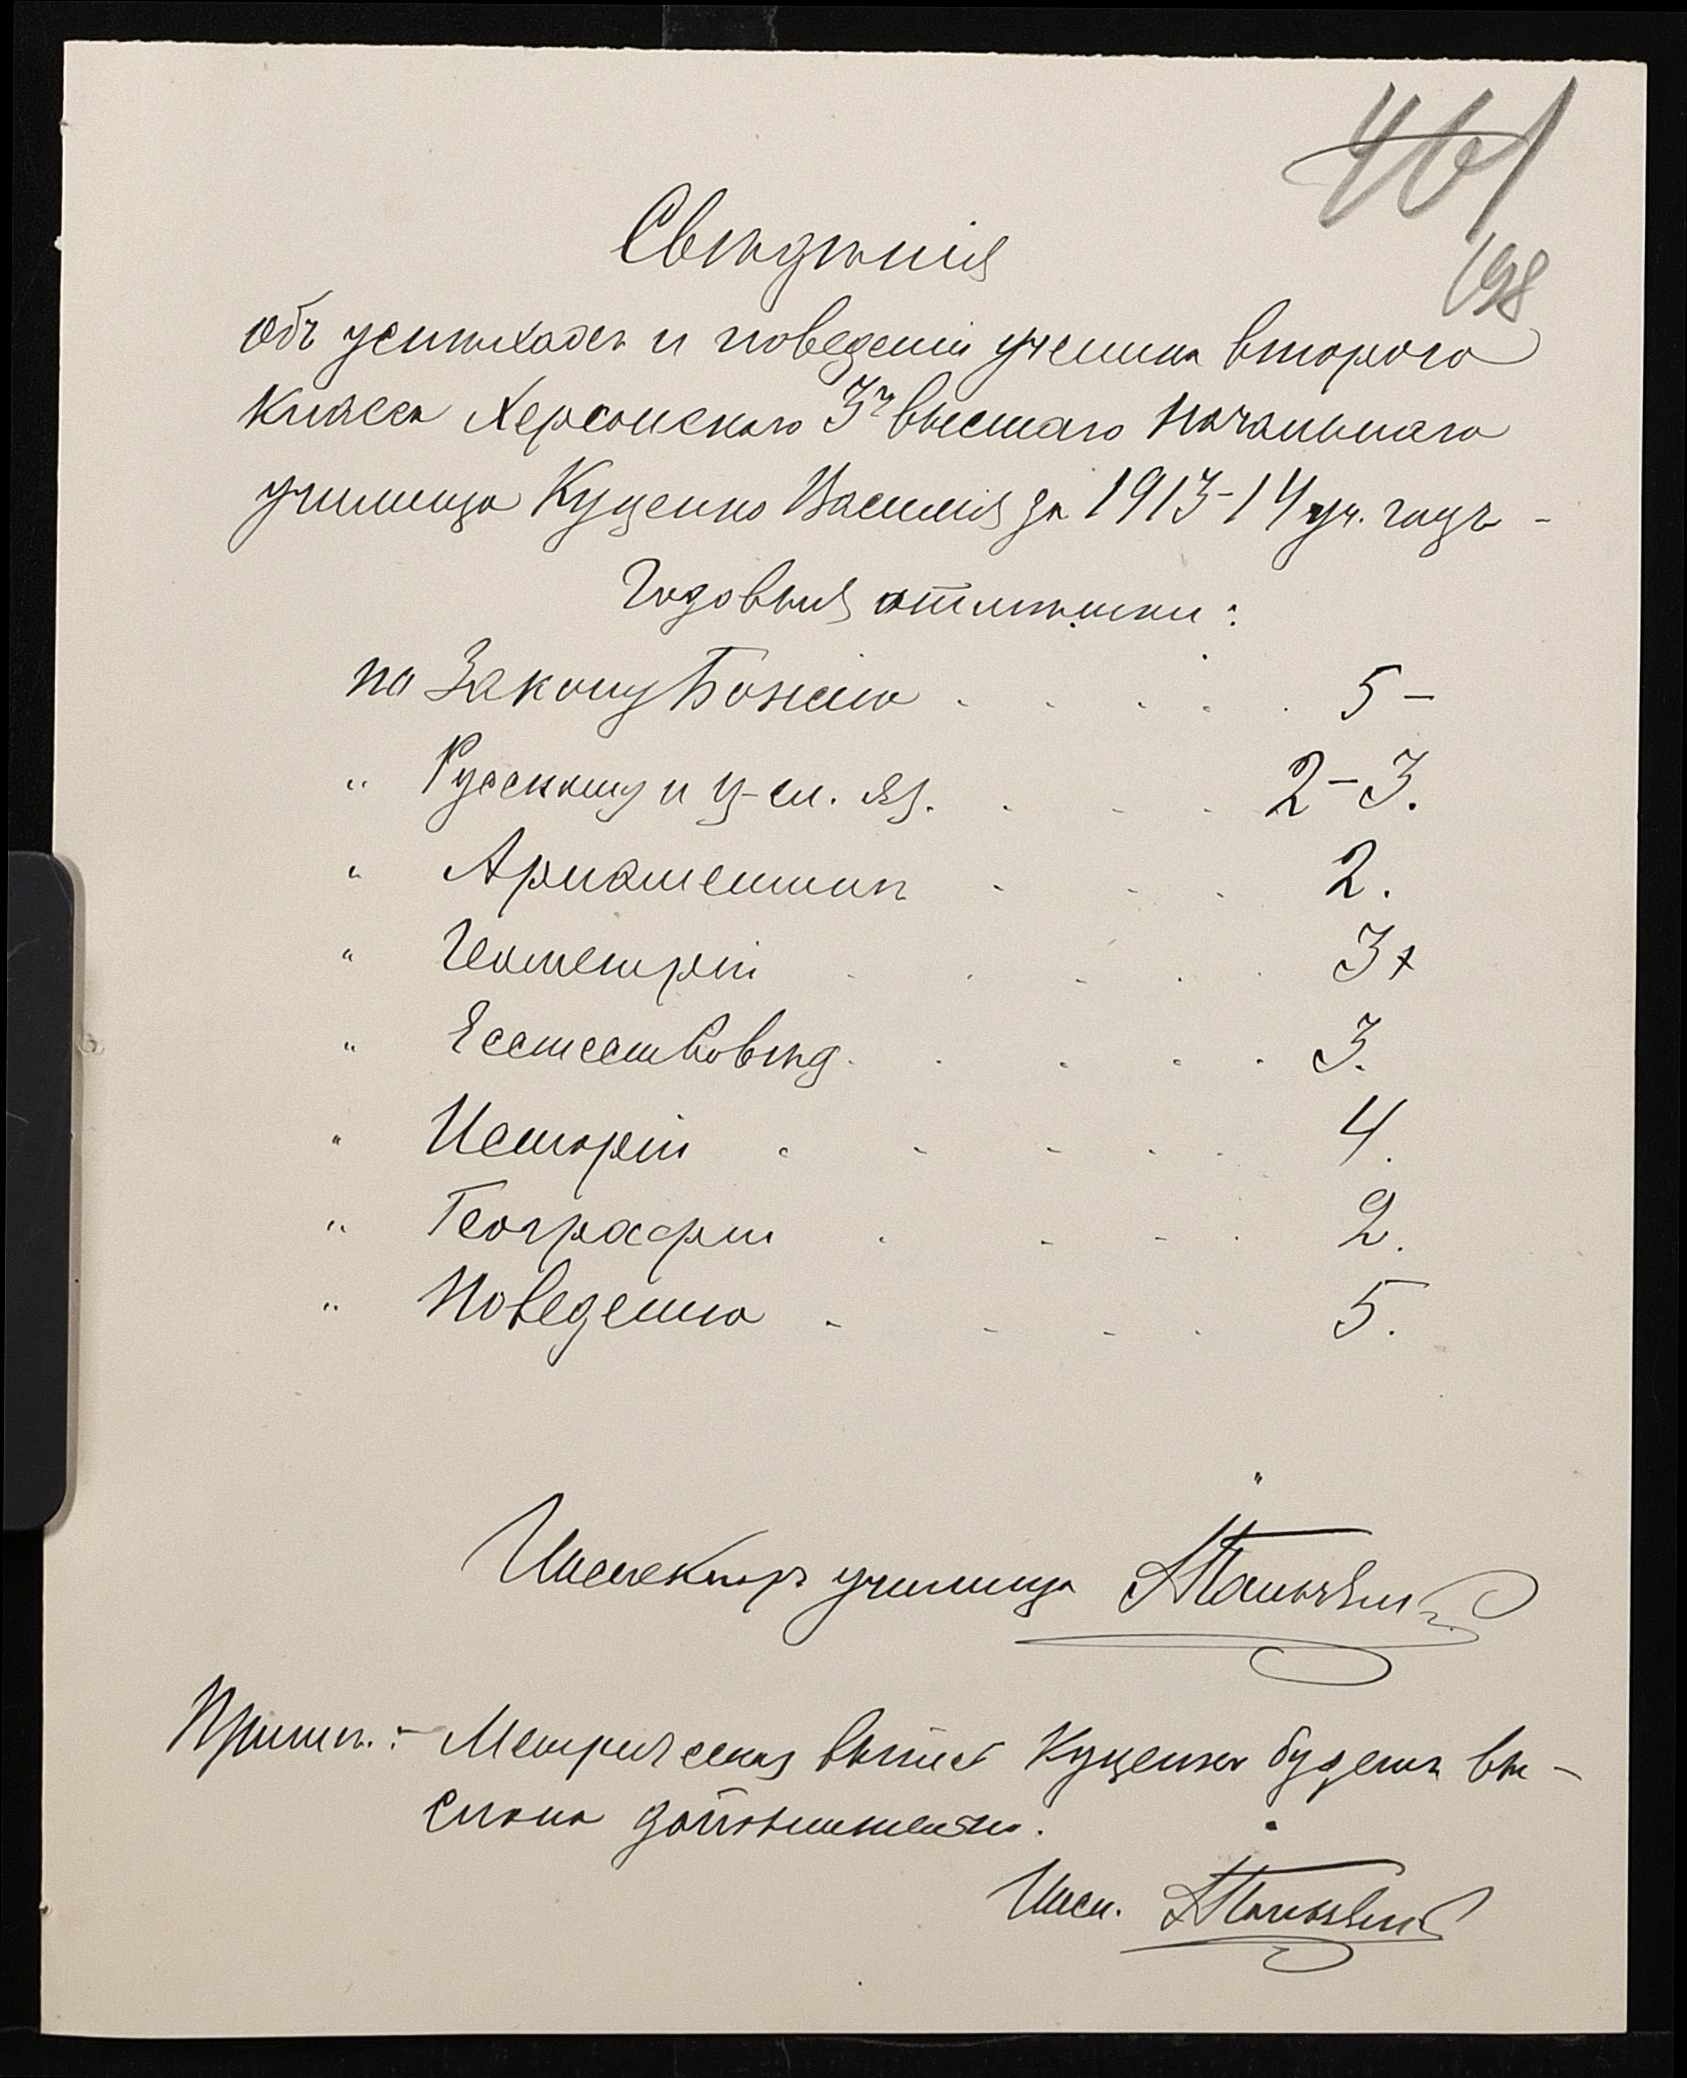 461
198
Свѣдѣнія
объ успѣхахъ и поведеніи ученика второго
класса Херсонскаго 3го высшаго начальнаго
училища Куценко Василія за 1913-14 уч. годъ -
Годовыя отмѣтки:
по Закону Божію . . . . . 5-
" Русскому и ц-сл. яз. . . . 2-3.
" Ариѳметикѣ . . . 2.
" Геометріи . . . . . 3+
" Естествовѣд. . . . . 3.
" Исторіи . . . . . 4.
" Географіи . . . . 2.
" Поведенію . . . . 5.
Инспекторъ училища
Примѣч.:- Метрическая выпись Куценко будетъ вы-
слана дополнительно.
Инсп.